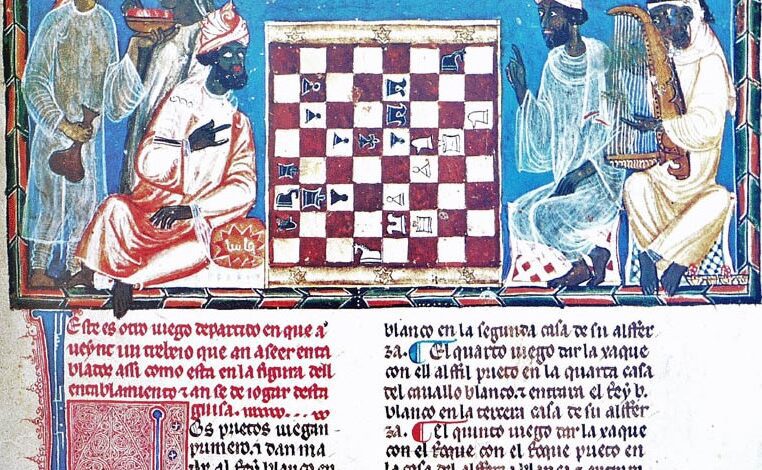 Este es otro iuego departido en que a
ueynt ⁊ un trebeio que an a seer enta
blados assi como esta en la figura dell
entablamiento ⁊ an se de iogar desta
guisa.
Los prietos iuegan
primero. ⁊ dan ma
al Rey blanco en
blanco en la segunda casa de su alffer
za. ¶ El quarto iuego dar la xaque
con ell alffil prieto en la quarta casa
del cauallo blanco. ⁊ entrara el Rey
blanco en la tercera casa de su alffer
za. ¶ El quinto iuego dar la xaque
con el Roque con el Roque prieto en
la casa del